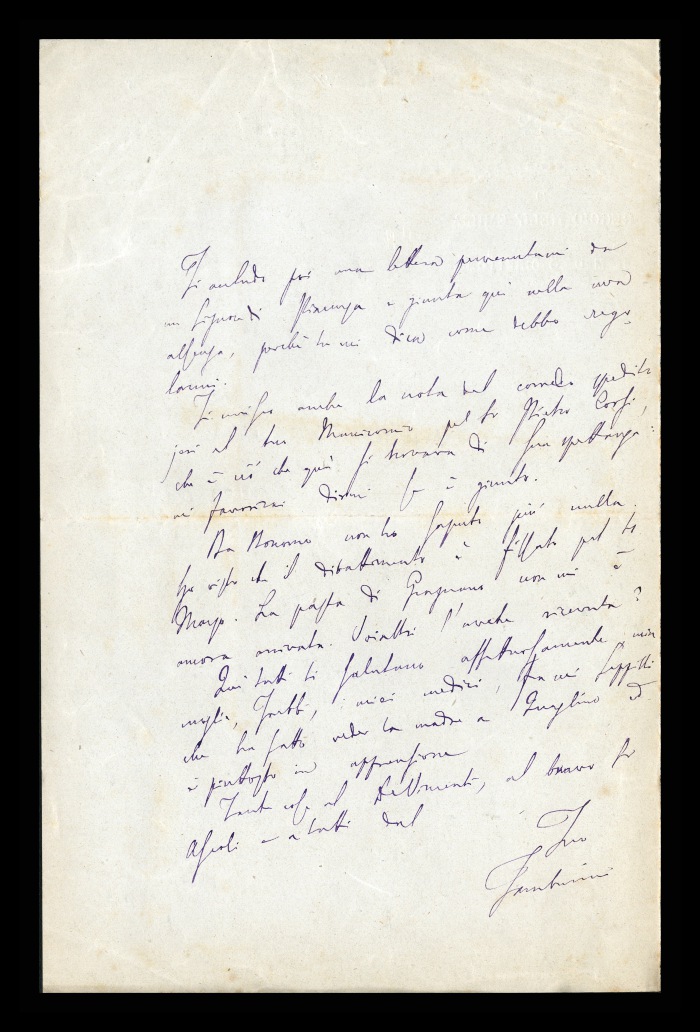 Ti accludo poi una lettera pervenutami da
un Signore di Piacenza e giunta qui nella mia
assenza, perché tu mi dica come debbo rego-
larmi.
Ti invio anche la nota del corredo spedito
jeri al tuo Manicomio pel Sr Pietro Corsi,
che è ciò che qui si trovava di Sua spettanza:
mi favorirai dirmi se è giunto.
Da non ho saputo più nulla.
Ho visto che il dibattimento è fissato pel 16
Marzo. La pasta di Gragnano non mi è
ancora arrivata. Voialtri l'avete ricevuta?
Qui tutti ti salutano affettuosamente, mia
moglie, i miei medici, fra cui Seppilli
che ha fatto veder la madre a ed
è piuttosto in apprensione
Tante cose al DeVincenti, al bravo Sr
Ascoli e a tutti dal
Tuo
Tamburini